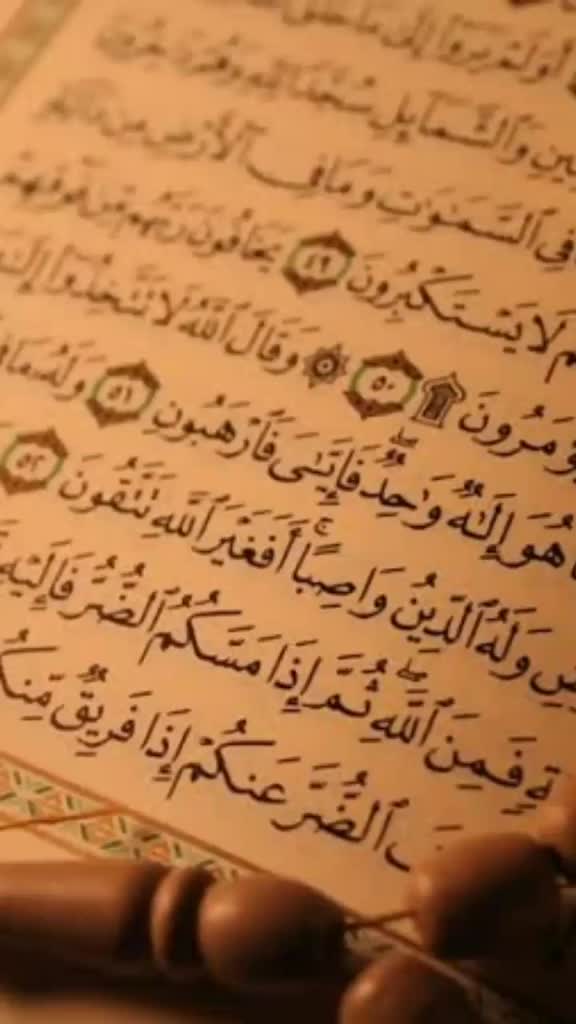 أَوَلَمْ يَرَوْا۟ إِلَىٰ مَا خَلَقَ
وَٱلشَّمَآئِلِ سُجَّدًا لِّلَّهِ وَهُمْ دَٰخِرُونَ
فِى ٱلسَّمَٰوَٰتِ وَمَا فِى ٱلْأَرْضِ مِن دَآبَّةٍ
لَا يَسْتَكْبِرُونَ ٤٩ يَخَافُونَ رَبَّهُم مِّن فَوْقِهِمْ
ؤْمَرُونَ ۩ ٥٠ ۞ وَقَالَ ٱللَّهُ لَا تَتَّخِذُوٓا۟ إِلَٰ
هُوَ إِلَٰهٌ وَٰحِدٌ ۖ فَإِيَّٰىَ فَٱرْهَبُونِ ٥١ وَلَهُۥ مَا فِى
ضِ وَلَهُ ٱلدِّينُ وَاصِبًا ۚ أَفَغَيْرَ ٱللَّهِ تَتَّقُونَ ٥٢
ةٍ فَمِنَ ٱللَّهِ ۖ ثُمَّ إِذَا مَسَّكُمُ ٱلضُّرُّ فَإِلَيْهِ
فَ ٱلضُّرَّ عَنكُمْ إِذَا فَرِيقٌ مِّنكُ